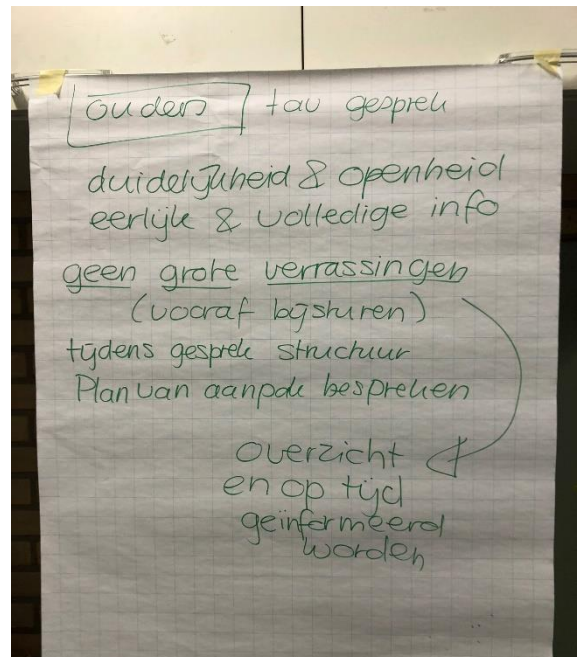 ouders tav gesprek
duidelijkheid & openheid
eerlijk & volledige info
geen grote verrassingen
(vooraf bijsturen)
tijdens gesprek structuur
Plan van aanpak bespreken
overzicht
en op tijd
geïnformeerd
worden